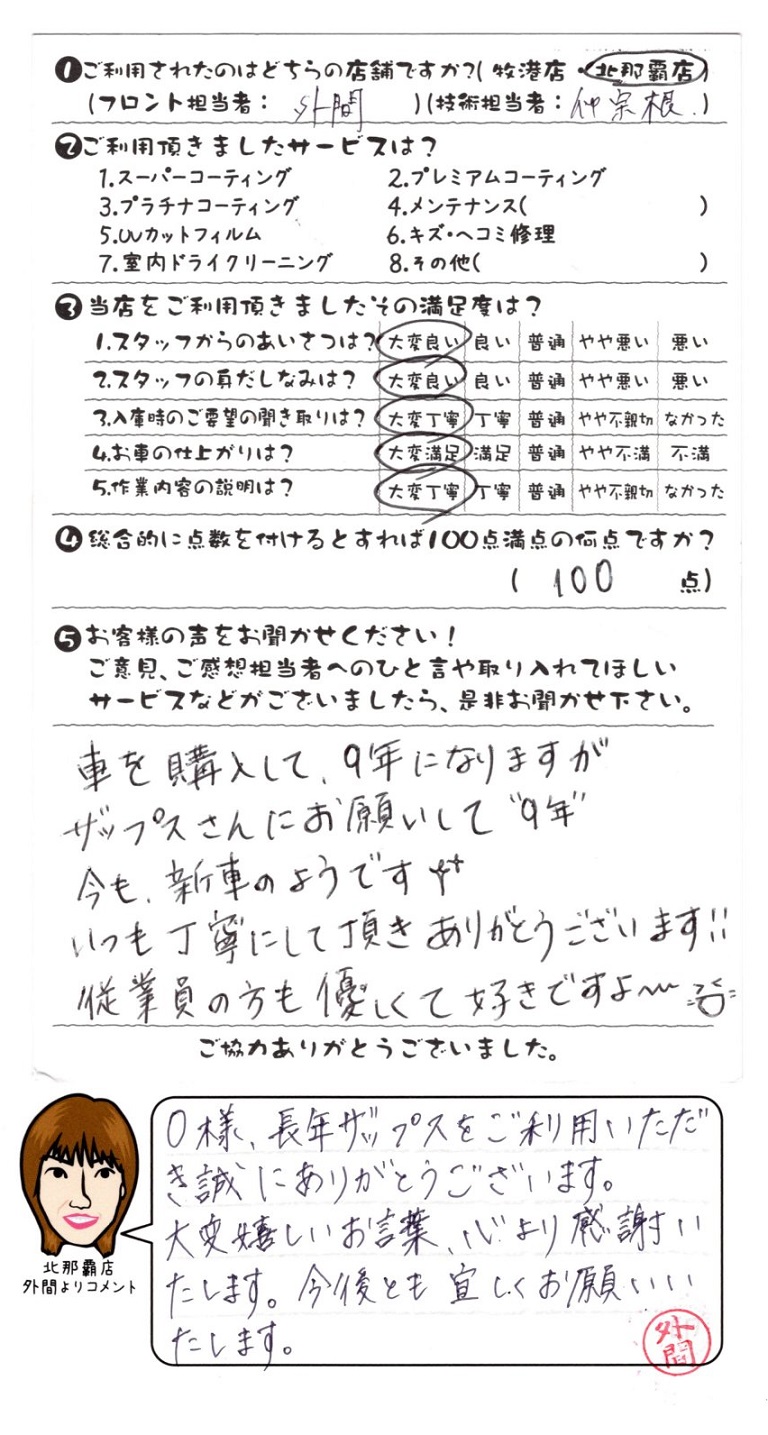 ❶ご利用されたのはどちらの店舗ですか?(牧港店・北那覇店)
(フロント担当者: 外間 )(技術担当者: 仲宗根 )
❷ご利用頂きましたサービスは?
1.スーパーコーティング 2.プレミアムコーティング
3.プラチナコーティング 4.メンテナンス( )
5.UVカットフィルム 6.キズ・ヘコミ修理
7.室内ドライクリーニング 8.その他( )
❸当店をご利用頂きましたその満足度は?
1.スタッフからのあいさつは? 大変良い 良い 普通 やや悪い 悪い
2.スタッフの身だしなみは? 大変良い 良い 普通 やや悪い 悪い
3.入庫時のご要望の聞き取りは? 大変丁寧 丁寧 普通 やや不親切 なかった
4.お車の仕上がりは? 大変満足 満足 普通 やや不満 不満
5.作業内容の説明は? 大変丁寧 丁寧 普通 やや不親切 なかった
❹総合的に点数を付けるとすれば100点満点の何点ですか?
( 100 点)
❺お客様の声をお聞かせください!
ご意見、ご感想担当者へのひと言や取り入れてほしい
サービスなどがございましたら、是非お聞かせ下さい。
車を購入して、9年になりますが
ザップスさんにお願いして"9年"
今も、新車のようです
いつも丁寧にして頂きありがとうございます!!
従業員の方も優しくて好きですよ〜
ご協力ありがとうございました。
O様、長年ザップスをご利用いただ
き誠にありがとうございます。
大変嬉しいお言葉、心より感謝い
たします。今後とも宜しくお願いい
たします。
北那覇店
外間よりコメント
外間